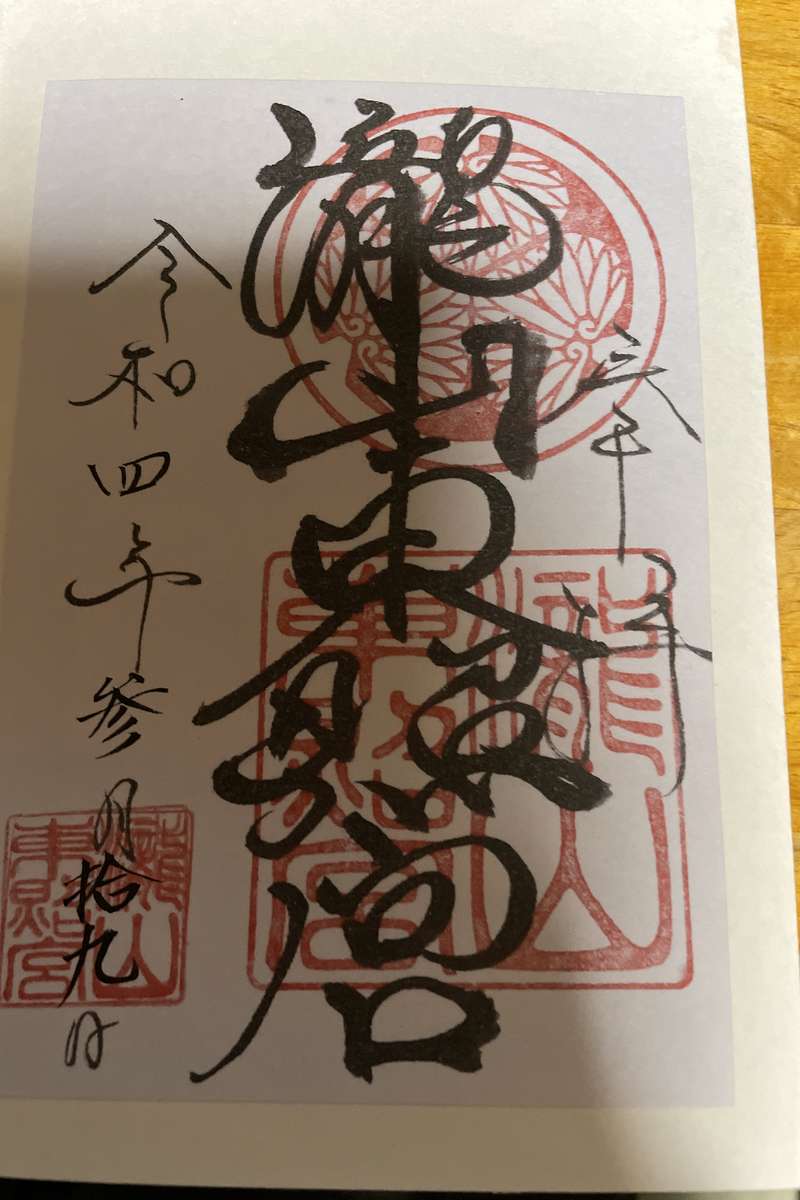 瀧山東照宮
令和四年参月拾九日
瀧山
東照宮
瀧山
東照宮